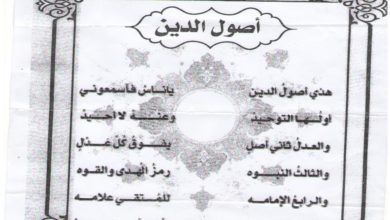 أصول الدين
هذي أصول الدين ياناس فاسمعوني
اولها التوحيد وعنه لا أحيد
والعدل ثاني أصل يفوق كل عدل
والثالث النبوه رمز الهدى والقوه
والرابع الإمامه للمتقي علامه